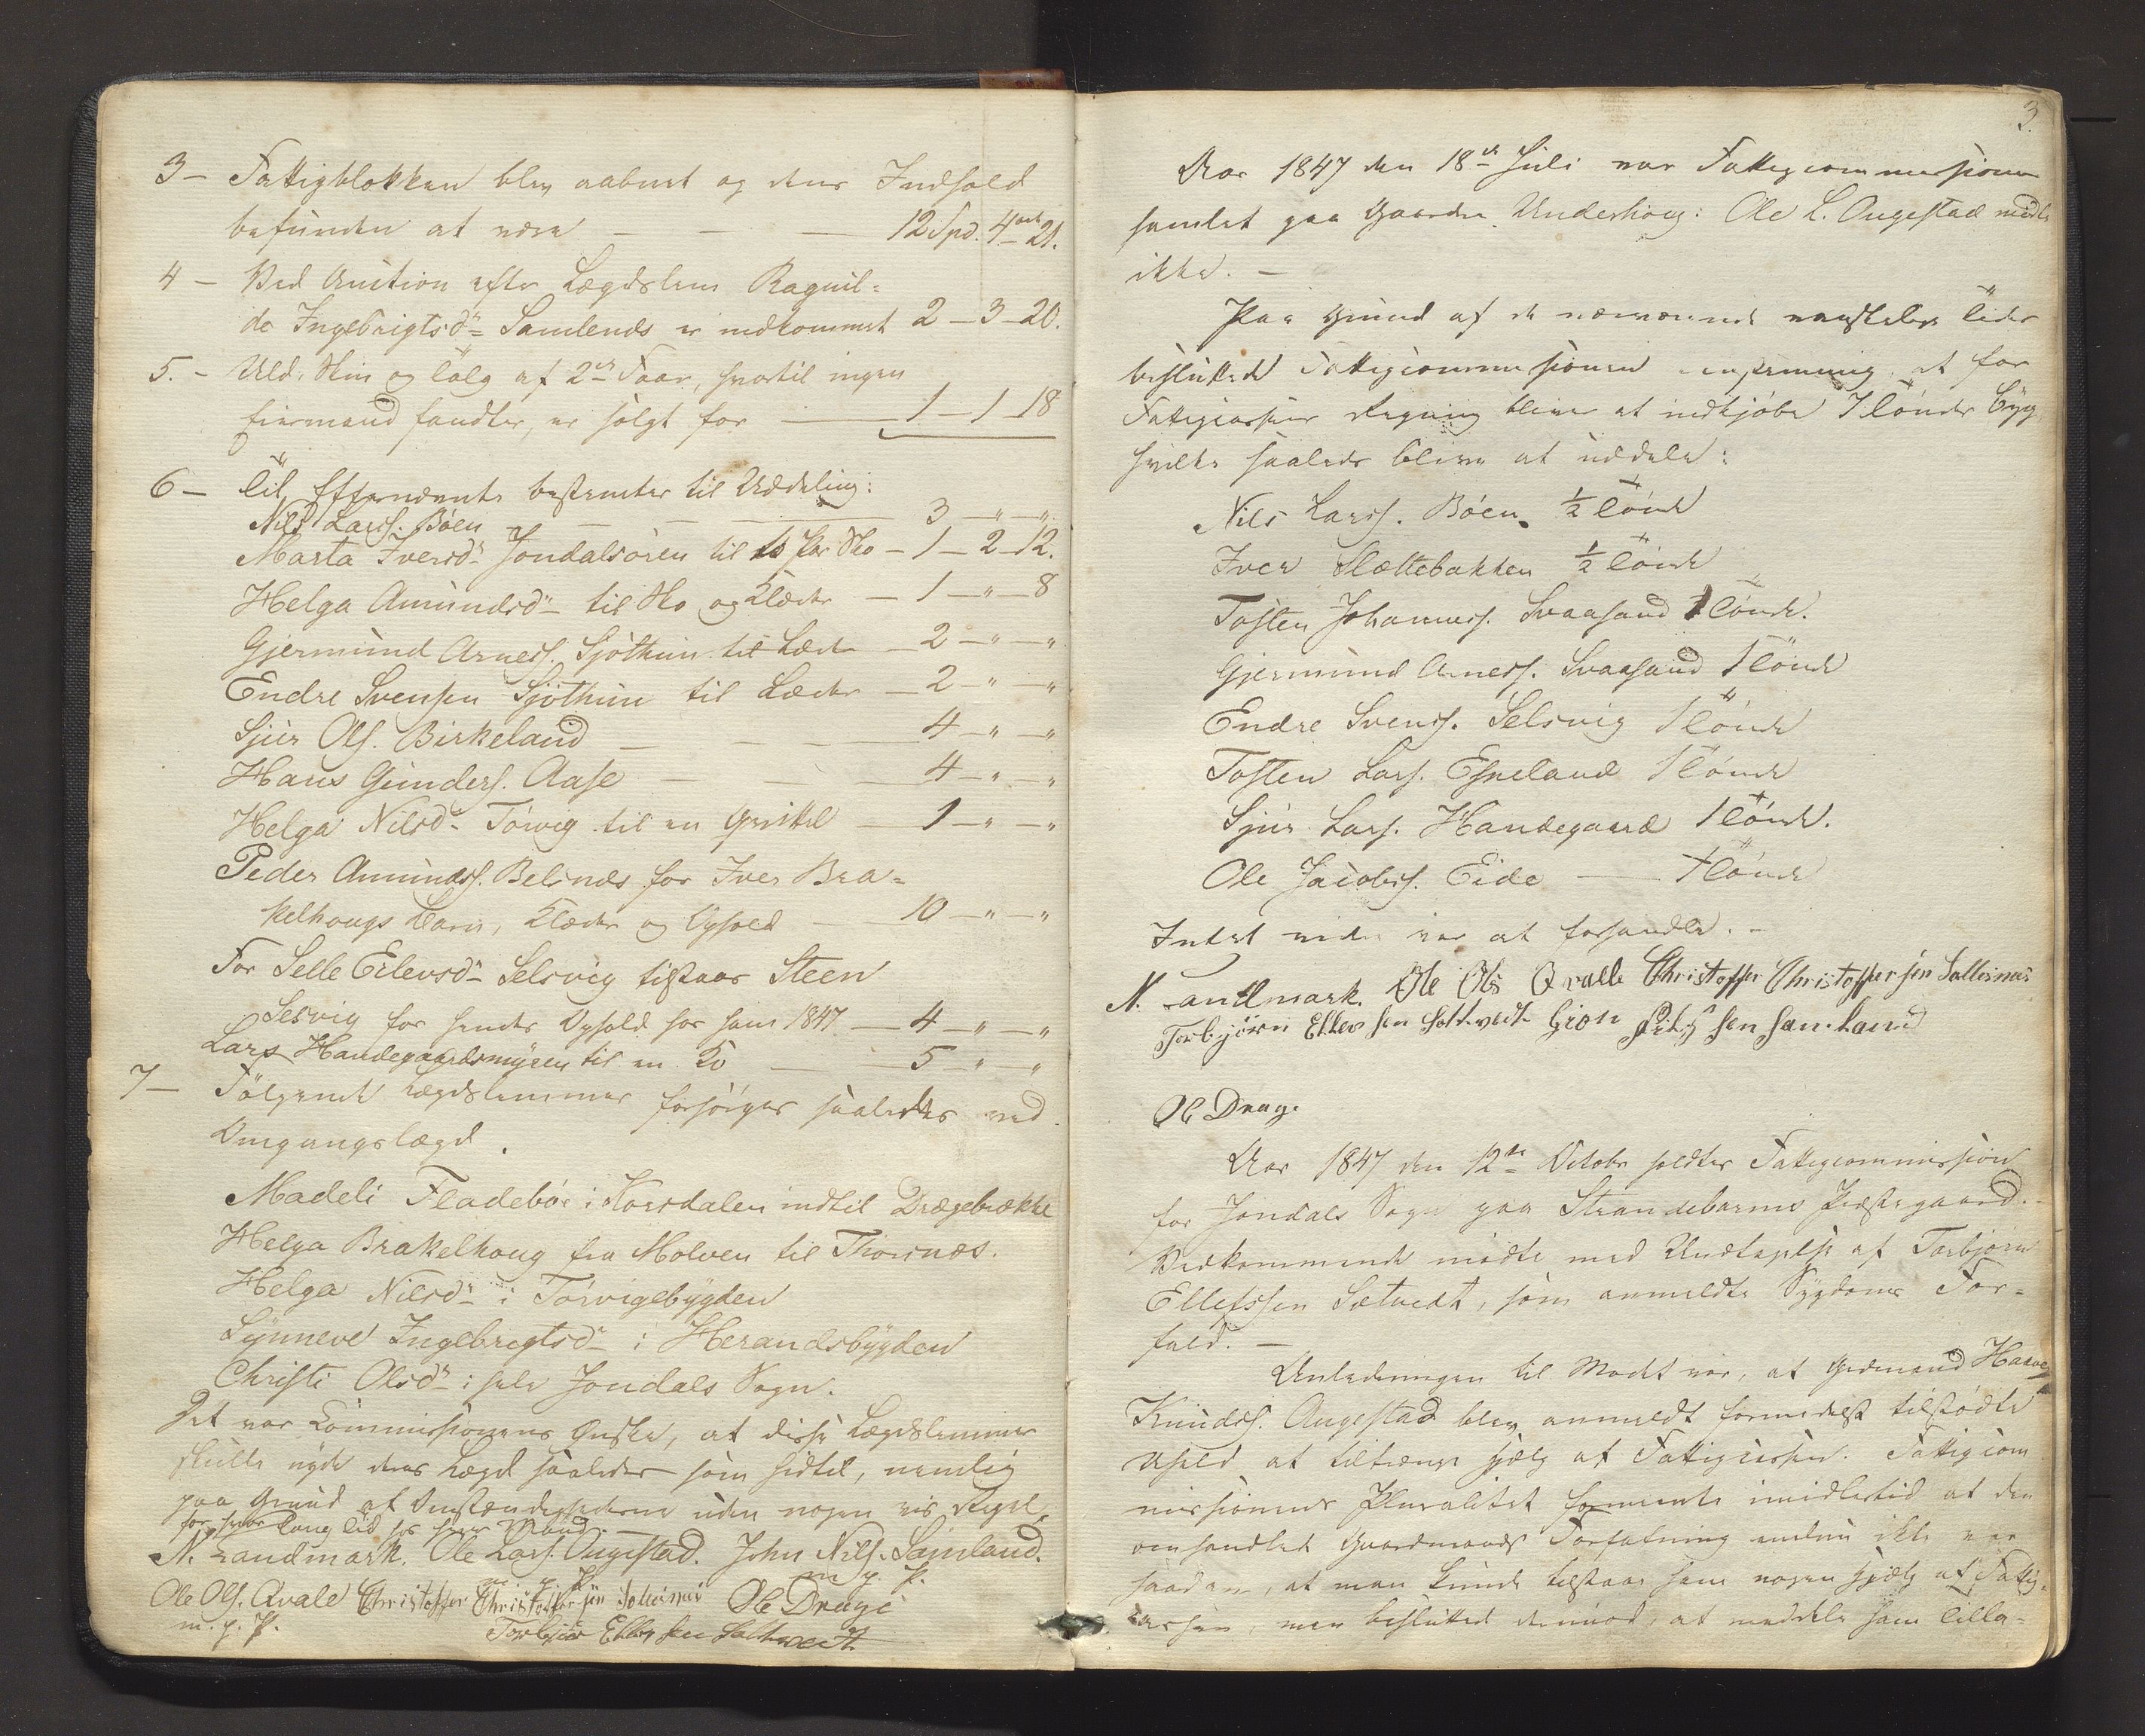 3 — Fattigblokken blev aabnet og dens Indhold
befunden at være — — — 12 Spd. 4 ort 21.
4 — Ved Auction efter Lægdslem Ragnil-
da Ingebrigtsdr Samlands er indkommet 2 — 3 — 20.
5. — Uld, Skin og Talg af 2de Faar, hvortil ingen
Eiermand fandtes, er solgt for — 1 — 1 — 18
6 — Til Efternævnte bestemtes til Uddeling:
Nils Larss. Bøen — — — 3 — " — "
Marta Iversdr Jondalsøren til Par Sko — 1 — 2 — 12.
Helga Amundsdr til Sko og Klæder — 1 — " — 8
Gjermund Arness. Sjøthun til Læder — 2 — " — "
Endre Svensen Sjøthun til Læder — 2 — " — "
Sjur Ols. Birkeland — — — 4 — " — "
Hans Gunders. Aase — — 4 — " — "
Helga Nilsd. Tørvig til en — 1 — " — "
Peder Amundss. Belsnæs for Iver Bra-
kelhougs Barn, Klæder og Ophold — 10 — " — "
For Selle Eilevsdr Selsvig tilstaaes Steen
Sesvig for hendes Ophold hos ham 1847 — 4 — " — "
Lars Handegaardsmyren til en Ko — 5 — " — "
7 — Følgende Lægdslemmer forsørges saaledes ved
Omgangslægd.
Madeli Fladebøe i Korsdalen indtil Drægebrække
Helga Brakelhoug fra Molven til Thorsnæs.
Helga Nilsdr i Tørvigebygden
Synneve Ingebregtsdr i Herandsbygden
Christi Olsdr i hele Jondals Sogn.
Det var Commissionens Ønske, at disse Lægdslemmer
skulle nyde deres Lægd saaledes som hidtil, nemlig
paa Grund af Omstændighederne uden nogen vis Regel,
for hvor lang Tid hos hver Mand. —
N. Landmark. Ole Lars. Augestad. John Nils. Samland.
m. p. P. m. p. P.
Ole Ols. Qvale Christoffer Christoffersen Solesnes Ole Drage
m. p. P. Torbjør Ellefsen Sætvedt
3.
Aar 1847 den 18de Juli var Fattigcommissionen
samlet paa Gaarden Underhoug: Ole L. Augestad mødte
ikke. —
Paa Grund af de nærværende vanskelige Tider
besluttede Fattigcommissionen eenstemmig at for
Fattigcassens Regning bliver at indkjøbe 7 Tønder Byg
hvilke saaledes bliver at uddele:
Nils Larss. Bøen ½ Tønde
Iver Slættebakken ½ Tønde
Tosten Johanness. Svaasand 1 Tønde.
Gjermund Arness. Svaasand 1 Tønde
Endre Svends. Selsvig 1 Tønde
Tosten Lars. Espeland 1 Tønde
Sjur Lars. Handegaard 1 Tønde.
Ole Jacobs. Eide — 1 Tønde
Intet videre var at forhandle. —
N. Landmark. Ole Ols Qvalle Christoffer Christoffersen Sallesnes
Torbjørn Ellev sen Sættvedt Gion sen Samland
Ole Drage
Aar 1847 den 12te Octobr holdtes Fattigcommission
for Jondals Sogn paa Strandebarms Præstegaard. —
Vedkommende mødte med Undtagelse af Torbjørn
Ellefssen Sætvedt, som anmeldte Sygdoms For-
fald. —
Anledningen til Mødet var, at Gaardmand Haavor
Knudss. Augestad blev anmeldt formedelst tilstødte
Uheld at tiltrænge Hjælp af Fattigcassen. Fattigcom
missionens Pluralitet formente imidlertid at den
omhandlede Gaardmands Forfatning endnu ikke var
saadan, at man kunde tilstaae ham nogen Hjælp af Fattig-
cassen, men besluttede derimod, at meddele ham Tilla-